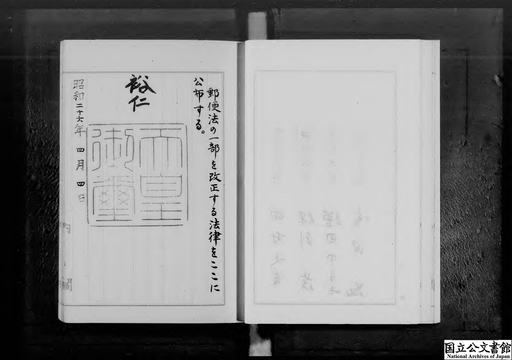 郵便法の一部を改正する法律をここに
公布する。
裕仁
天皇
御璽
昭和二十六年 四月 四日
内閣
国立公文書館
National Archives of Japan